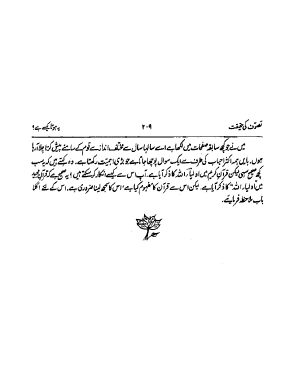 تصوّف کی حقیقت ۲۰۹ یہ ہوتا کیسے ہے؟
میں نے جو کچھ سابقہ صفحات میں لکھا ہے اسے سالہا سال سے مختلف انداز سے قوم کے سامنے پیش کرتا چلا آ رہا
ہوں۔ بایں ہمہ اکثر احباب کی طرف سے ایک سوال پوچھا جاتا ہے جو بڑی اہمیت رکھتا ہے۔ وہ کہتے ہیں کہ یہ سب
کچھ صحیح سہی لیکن قرآن کریم میں اولیاء اللہ کا ذکر آیا ہے۔ آپ اس سے کیسے انکار کر سکتے ہیں؟ یہ صحیح ہے کہ قرآن مجید
میں "اولیاء اللہ" کا ذکر آیا ہے۔ لیکن اس سے قرآن کا مفہوم کیا ہے اس کا سمجھ لینا ضروری ہے۔ اس کے لئے اگلا
باب ملاحظہ فرمائیے۔